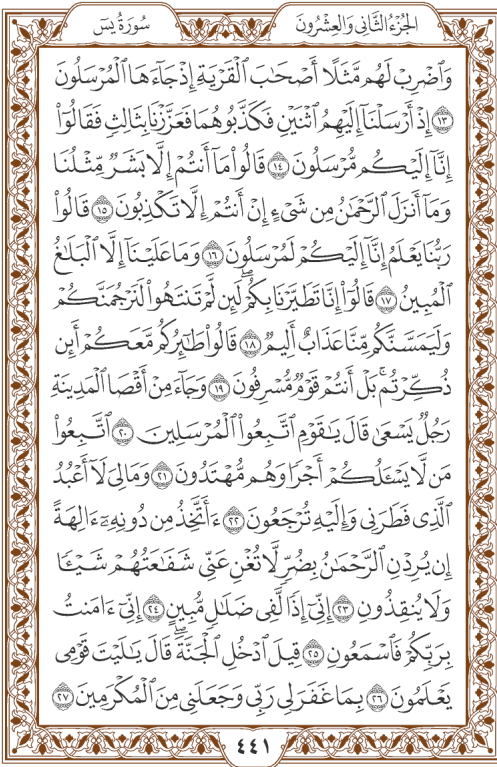 الجُزْءُ الثَّانِي وَالعِشْرُونَ
سُورَةُ يسٓ
وَٱضْرِبْ لَهُم مَّثَلًا أَصْحَٰبَ ٱلْقَرْيَةِ إِذْ جَآءَهَا ٱلْمُرْسَلُونَ
١٣ إِذْ أَرْسَلْنَآ إِلَيْهِمُ ٱثْنَيْنِ فَكَذَّبُوهُمَا فَعَزَّزْنَا بِثَالِثٍ فَقَالُوٓا۟
إِنَّآ إِلَيْكُم مُّرْسَلُونَ ١٤ قَالُوا۟ مَآ أَنتُمْ إِلَّا بَشَرٌ مِّثْلُنَا
وَمَآ أَنزَلَ ٱلرَّحْمَٰنُ مِن شَىْءٍ إِنْ أَنتُمْ إِلَّا تَكْذِبُونَ ١٥ قَالُوا۟
رَبُّنَا يَعْلَمُ إِنَّآ إِلَيْكُمْ لَمُرْسَلُونَ ١٦ وَمَا عَلَيْنَآ إِلَّا ٱلْبَلَٰغُ
ٱلْمُبِينُ ١٧ قَالُوٓا۟ إِنَّا تَطَيَّرْنَا بِكُمْ ۖ لَئِن لَّمْ تَنتَهُوا۟ لَنَرْجُمَنَّكُمْ
وَلَيَمَسَّنَّكُم مِّنَّا عَذَابٌ أَلِيمٌ ١٨ قَالُوا۟ طَٰٓئِرُكُم مَّعَكُمْ ۚ أَئِن
ذُكِّرْتُم ۚ بَلْ أَنتُمْ قَوْمٌ مُّسْرِفُونَ ١٩ وَجَآءَ مِنْ أَقْصَا ٱلْمَدِينَةِ
رَجُلٌ يَسْعَىٰ قَالَ يَٰقَوْمِ ٱتَّبِعُوا۟ ٱلْمُرْسَلِينَ ٢٠ ٱتَّبِعُوا۟
مَن لَّا يَسْـَٔلُكُمْ أَجْرًا وَهُم مُّهْتَدُونَ ٢١ وَمَالِىَ لَآ أَعْبُدُ
ٱلَّذِى فَطَرَنِى وَإِلَيْهِ تُرْجَعُونَ ٢٢ ءَأَتَّخِذُ مِن دُونِهِۦٓ ءَالِهَةً
إِن يُرِدْنِ ٱلرَّحْمَٰنُ بِضُرٍّ لَّا تُغْنِ عَنِّى شَفَٰعَتُهُمْ شَيْـًٔا
وَلَا يُنقِذُونِ ٢٣ إِنِّىٓ إِذًا لَّفِى ضَلَٰلٍ مُّبِينٍ ٢٤ إِنِّىٓ ءَامَنتُ
بِرَبِّكُمْ فَٱسْمَعُونِ ٢٥ قِيلَ ٱدْخُلِ ٱلْجَنَّةَ ۖ قَالَ يَٰلَيْتَ قَوْمِى
يَعْلَمُونَ ٢٦ بِمَا غَفَرَ لِى رَبِّى وَجَعَلَنِى مِنَ ٱلْمُكْرَمِينَ ٢٧
٤٤١